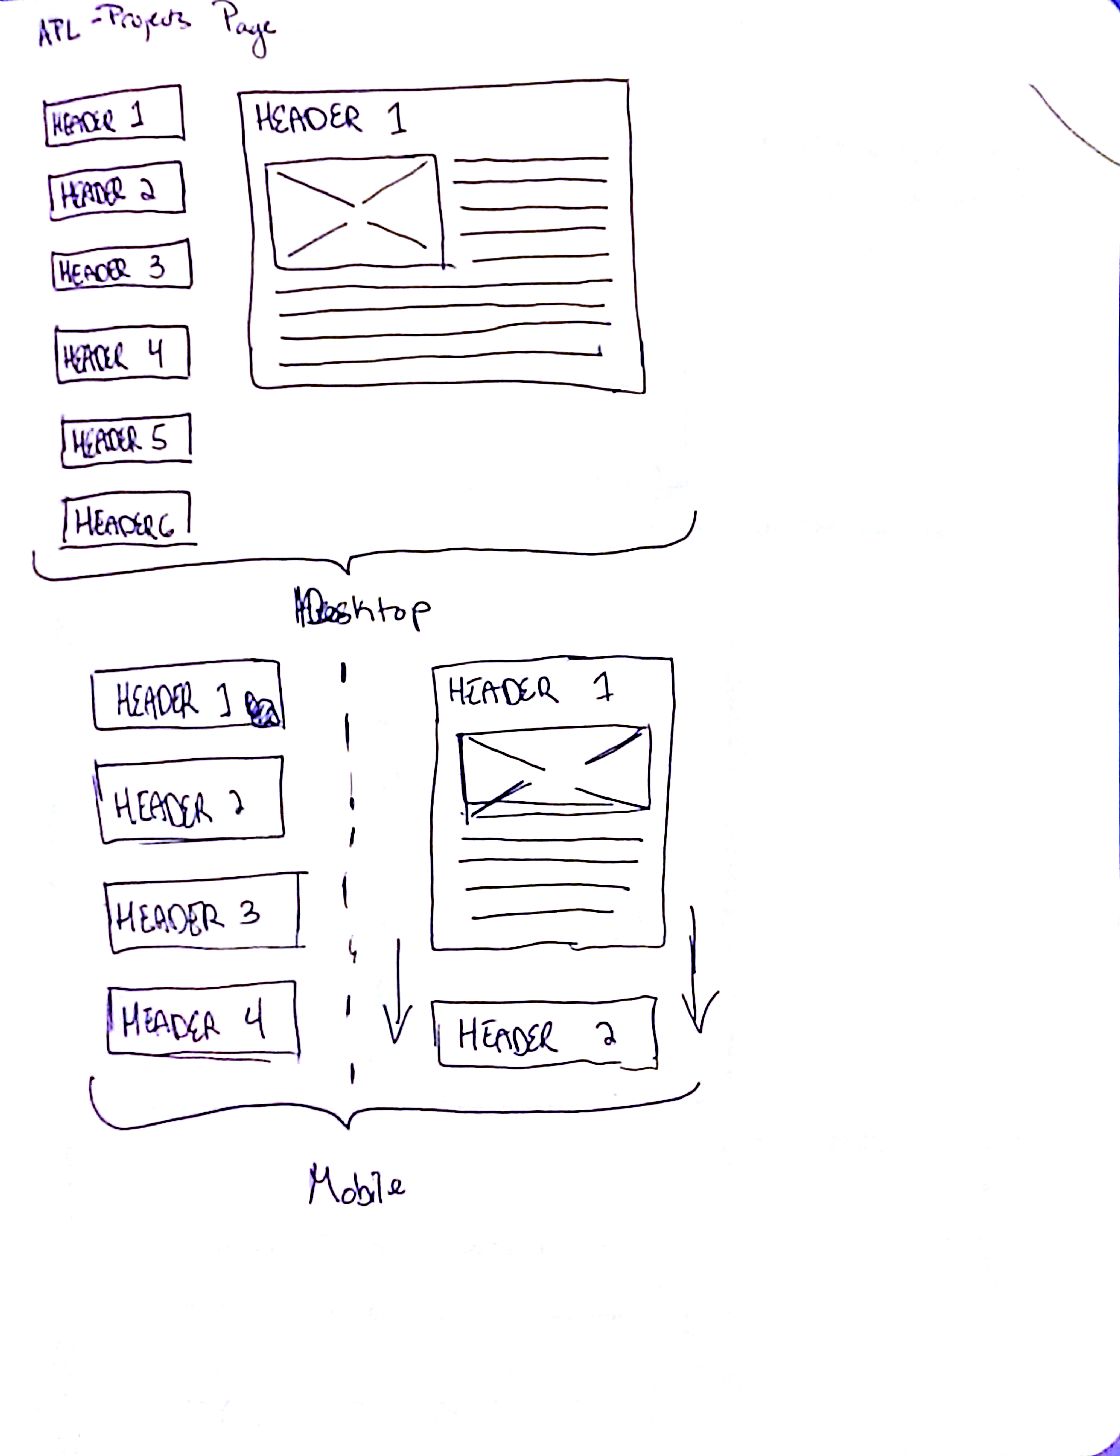 ATL - Projects Page
HEADER 1
HEADER 2
HEADER 3
HEADER 4
HEADER 5
HEADER 6
HEADER 1
Desktop
HEADER 1
HEADER 2
HEADER 3
HEADER 4
HEADER 1
HEADER 2
Mobile